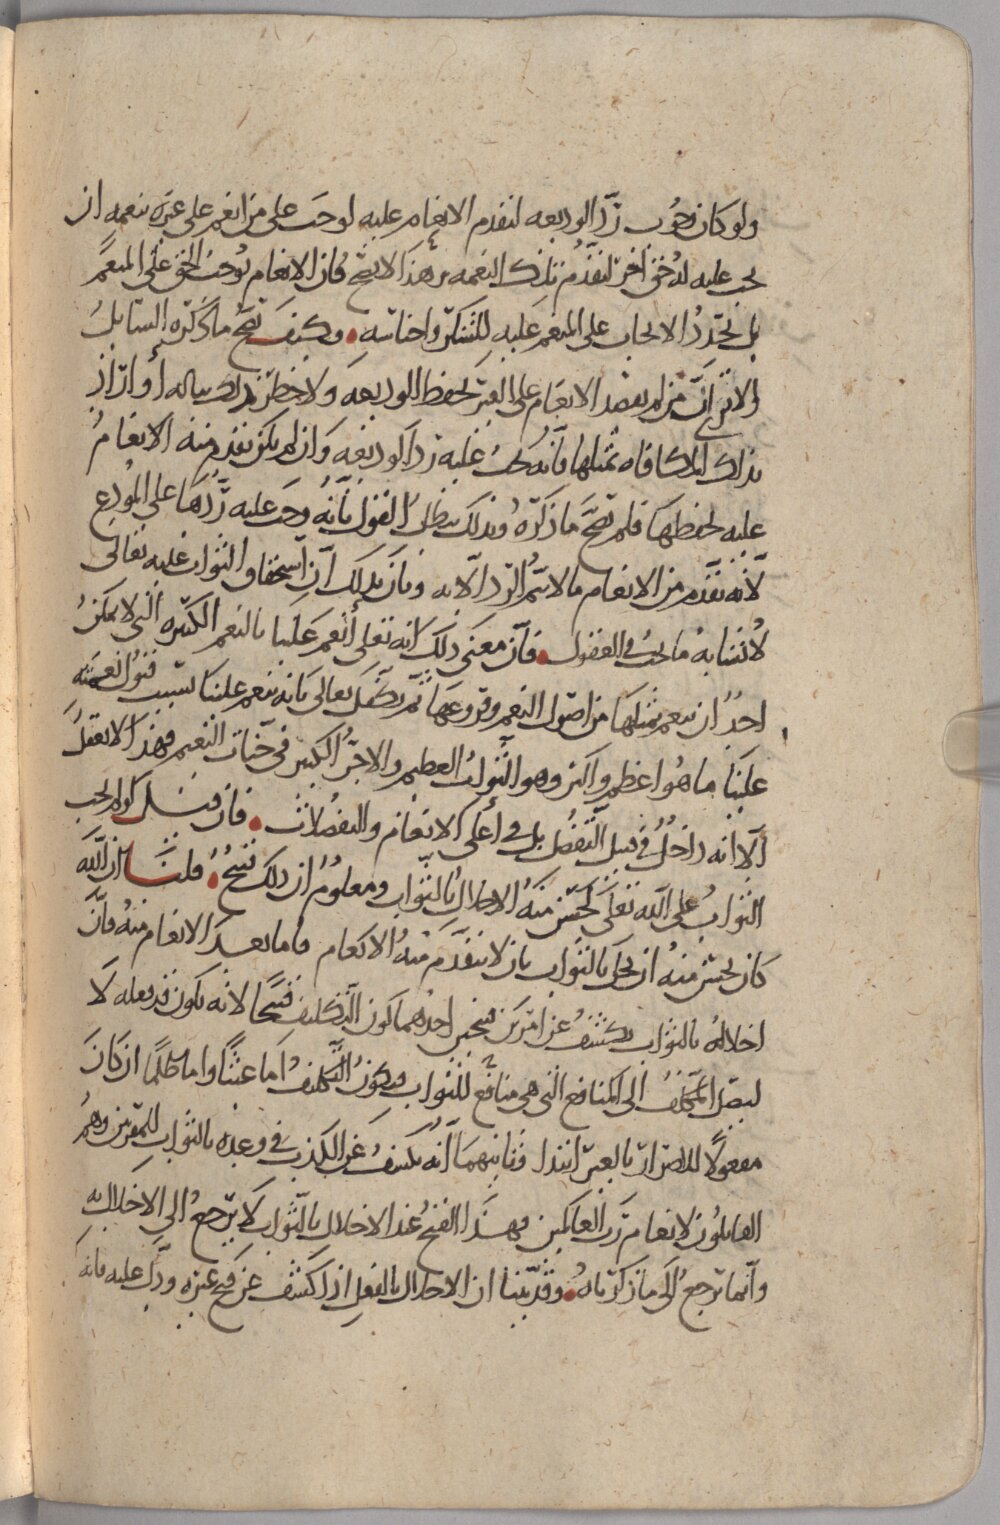 ولو كان وجوب رد الوديعه لتقدم الانعام عليه لوجب على من انعم على غيره بنعمه ان
يجب عليه له حق اخر لتقدم تلك النعمه وهذا لا يصح فان الانعام يوجب الحق على المنعم
بل تجدد الايجاب على المنعم عليه للشكر واجناسه وكيف يصح ما ذكره السايل
الا ترى ان من لم يقصد الانعام على الغير بحفظ الوديعه ولا خطر ذلك بباله او اراد
بذلك المكافاه بمثلها فانه يجب عليه رد الوديعه وان لم يكن تقدم منه الانعام
عليه بحفظها فلم يصح ما ذكره وبذلك يبطل القول بانه وجب عليه ردها على المودع
لانه تقدم من الانعام ما لا يتم الرد الا به وبان بذلك ان استحقاق الثواب عليه تعالى
لا تشابه ما يجب في العقول فان معنى ذلك انه تعالى انعم علينا بالنعم الكثيره التي لا يمكن
احد ان ينعم بمثلها من اصول النعم وفروعها ثم تكفل تعالى بانه ينعم علينا بسبب قبول نعمته
علينا ما هو اعظم واكبر وهو الثواب العظيم والاجر الكبير في جنات النعيم فهذا لا يعقل
الا انه داخل في قبيل التفضل بل في اعلى الانعام والتفضلات فان قيل لو لم يجب
الثواب على الله تعالى لحسن منه الاخلال بالثواب ومعلوم ان ذلك قبيح قلنا ان الله
كان يحسن منه ان يخل بالثواب بان لا يتقدم منه الانعام فاما بعد الانعام منه فان
اخلاله بالثواب يكشف عن امرين قبيحين احدهما كون التكليف قبيحا لانه يكون قد فعله لا
ليصل المكلف الى المنافع التي هي منافع للثواب فيكون التكليف اما عبثا واما ظلما ان كان
مفعولا للاضرار بالغير ابتدا وثانيهما انه يكشف عن الكذب في وعده بالثواب للمقرين وهم
القايلون لانعام رب العالمين فهذا القبح عند الاخلال بالثواب لا يرجع الى الاخلال به
وانما يرجع الى ما ذكرناه وقد بينا ان الاخلال بالفعل اذا كشف عن قبح غيره ودل عليه فانه